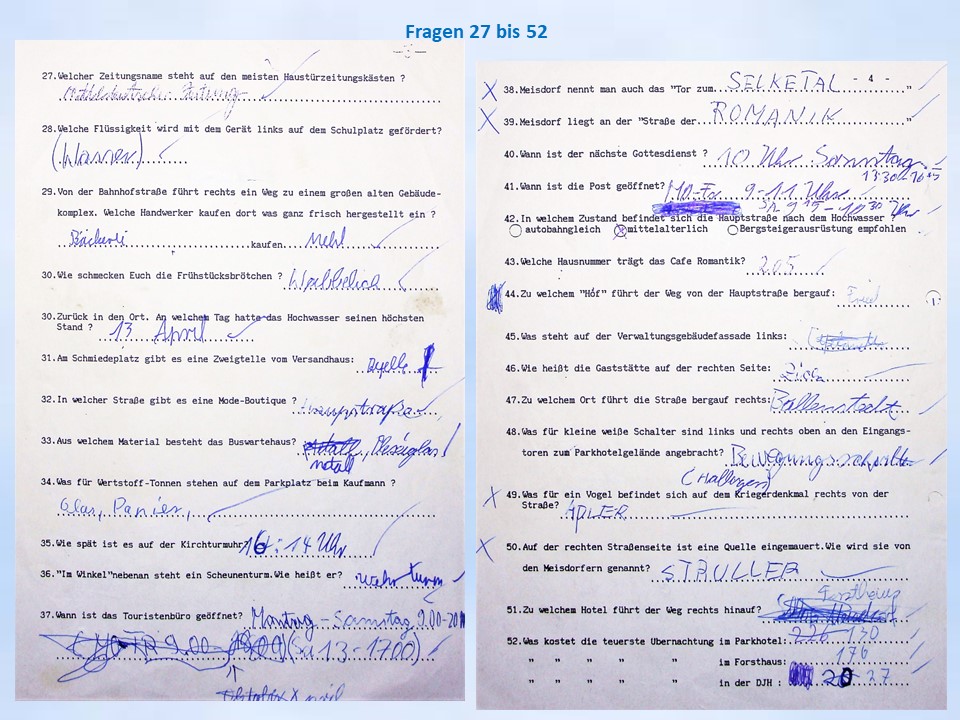 Fragen 27 bis 52
- 3 -
27.Welcher Zeitungsname steht auf den meisten Haustürzeitungskästen ?
Mitteldeutsche Zeitung
28.Welche Flüssigkeit wird mit dem Gerät links auf dem Schulplatz gefördert?
(Wasser)
29.Von der Bahnhofstraße führt rechts ein Weg zu einem großen alten Gebäude-
komplex. Welche Handwerker kaufen dort was ganz frisch hergestellt ein ?
Bäckerei kaufen Mehl
30.Wie schmecken Euch die Frühstücksbrötchen ?
30.Zurück in den Ort. An welchem Tag hatte das Hochwasser seinen höchsten
Stand ? 13 April
31.Am Schmiedeplatz gibt es eine Zweigtelle vom Versandhaus: Quelle
32.In welcher Straße gibt es eine Mode-Boutique ? Hauptstraße
33.Aus welchem Material besteht das Buswartehaus? Metall, Plexiglas
metall
34.Was für Wertstoff-Tonnen stehen auf dem Parkplatz beim Kaufmann ?
Glas, Papier,
35.Wie spät ist es auf der Kirchturmuhr? 16:14 Uhr
36."Im Winkel"nebenan steht ein Scheunenturm.Wie heißt er?
37.Wann ist das Touristenbüro geöffnet? Montag - Samstag 9.00-20
(Sa 13-1700)
- 4 -
X 38.Meisdorf nennt man auch das "Tor zum SELKETAL "
X 39.Meisdorf liegt an der "Straße der ROMANIK "
40.Wann ist der nächste Gottesdienst ? 10 Uhr Sonntag
41.Wann ist die Post geöffnet? Mo-Fr 9-11 Uhr
42.In welchem Zustand befindet sich die Hauptstraße nach dem Hochwasser ?
autobahngleich mittelalterlich Bergsteigerausrüstung empfohlen
43.Welche Hausnummer trägt das Cafe Romantik? 205
44.Zu welchem "Hóf" führt der Weg von der Hauptstraße bergauf:
45.Was steht auf der Verwaltungsgebäudefassade links:
46.Wie heißt die Gaststätte auf der rechten Seite:
47.Zu welchem Ort führt die Straße bergauf rechts: Ballenstedt
48.Was für kleine weiße Schalter sind links und rechts oben an den Eingangs-
toren zum Parkhotelgelände angebracht? Bewegungsschalter
X 49.Was für ein Vogel befindet sich auf dem Kriegerdenkmal rechts von der
Straße? ADLER
X 50.Auf der rechten Straßenseite ist eine Quelle eingemauert.Wie wird sie von
den Meisdorfern genannt? STRULLER
Forsthaus
51.Zu welchem Hotel führt der Weg rechts hinauf?
52.Was kostet die teuerste Ubernachtung im Parkhotel: 130
" " " " " im Forsthaus: 176
" " " " " in der DJH : 20 27